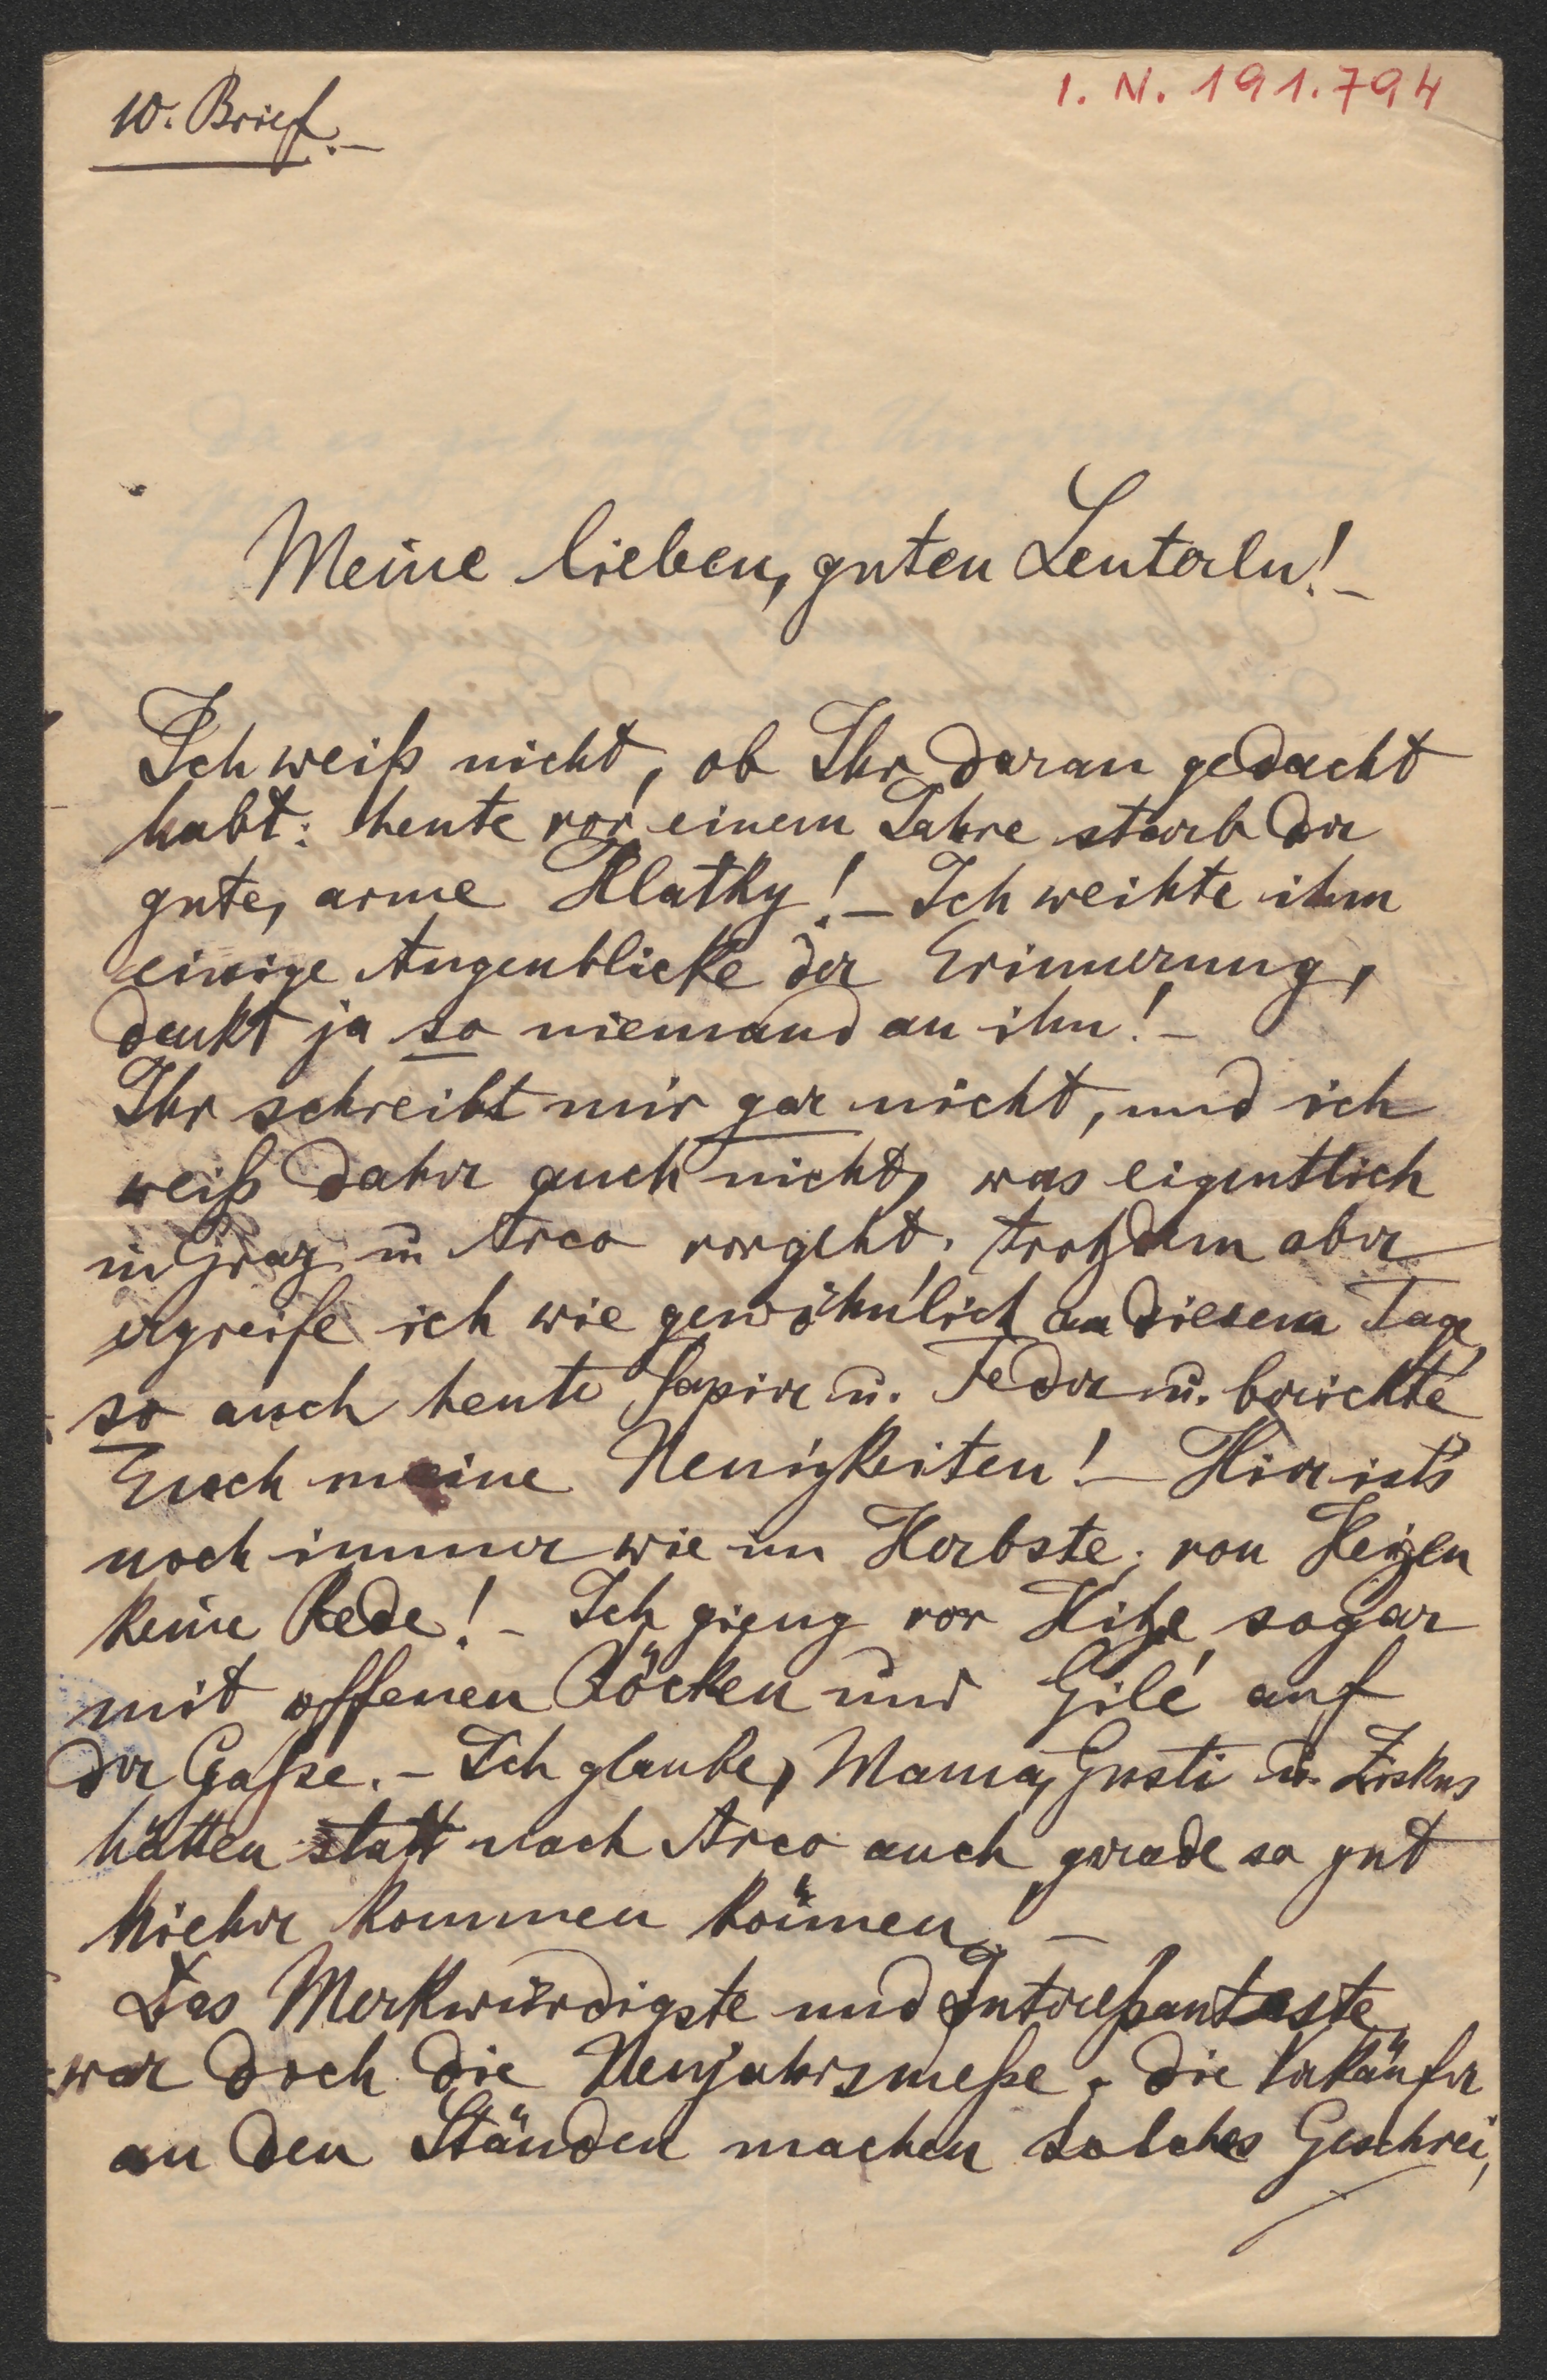 10. Brief.–
I. N. 191.794
Meine lieben, guten Leuterln!–
Ich weiß nicht, ob Ihr daran gedacht
habt: heute vor einem Jahre starb der
gute, arme Hlatky! – Ich weihte ihm
einige Augenblicke der Erinnerung,
denkt ja so niemand an ihn! –
Ihr schreibt mir gar nicht, und ich
weiß daher auch nicht, was eigentlich
in Graz u Arco vorgeht, trotzdem aber
ergreife ich wie gewöhnlich an diesem Tage,
so auch heute Papier u. Feder u. berichte
Euch meine Neuigkeiten! – Hier ist's
noch immer wie im Herbste; von Heizen
keine Rede! – Ich gieng vor Hitze sogar
mit offenen Röcken und Gilé auf
der Gaße. – Ich glaube, Mama, Gusti u. Ziskus
hätten statt nach Arco auch gerade so gut
hieher kommen können. –
Das Merkwürdigste und Intereßanteste
war doch die Neujahrsmeße. Die Verkäufer
an den Ständen machen solches Geschrei,